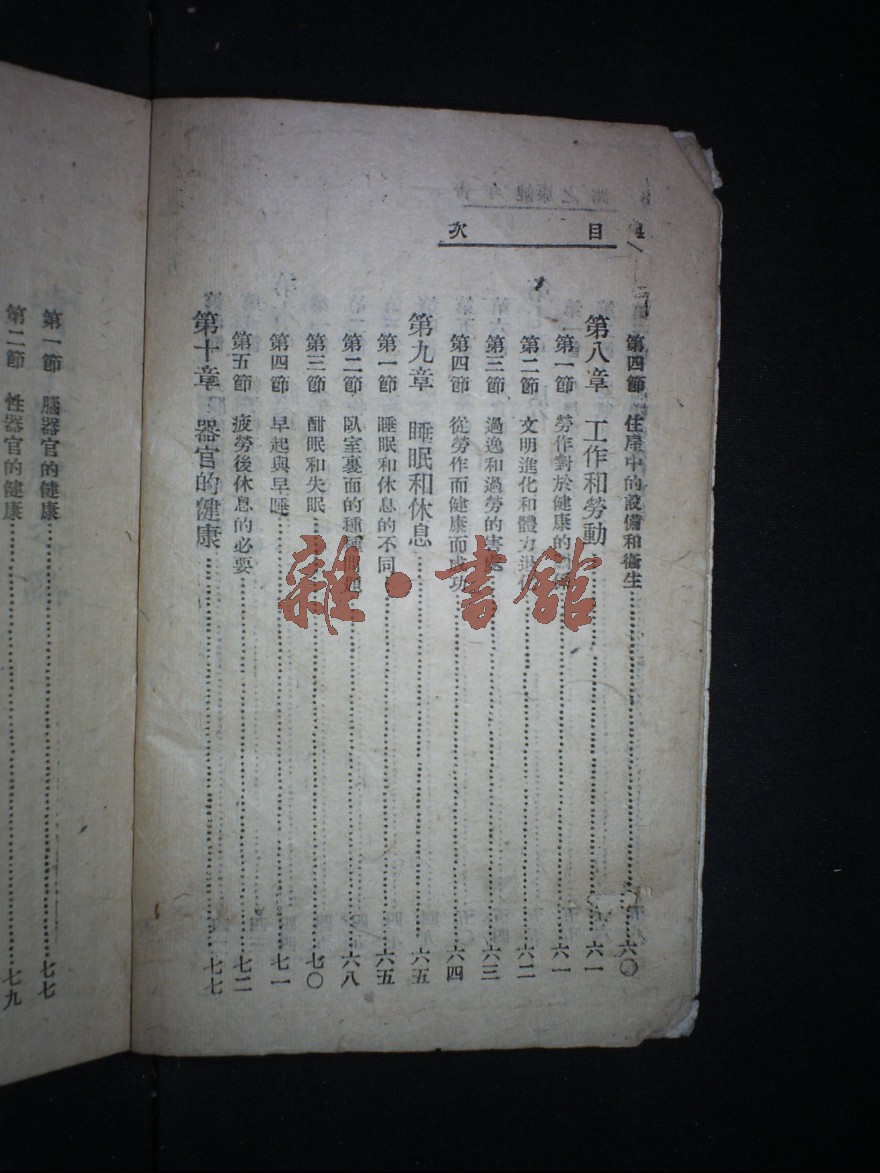 目次
第四節　住屋中的設備和衞生……六〇
第八章　工作和勞動……六一
第一節　勞作對於健康的……六一
第二節　文明進化和體力……六二
第三節　過逸和過勞的害處……六三
第四節　從勞作而健康而成功……六四
第九章　睡眠和休息……六五
第一節　睡眠和休息的不同……六五
第二節　臥室裏面的種種……六八
第三節　酣眠和失眠……七〇
第四節　早起與早睡……七一
第五節　疲勞後休息的必要……七二
第十章　器官的健康……七七
第一節　腦器官的健康……七七
第二節　性器官的健康……七九
雜·書館